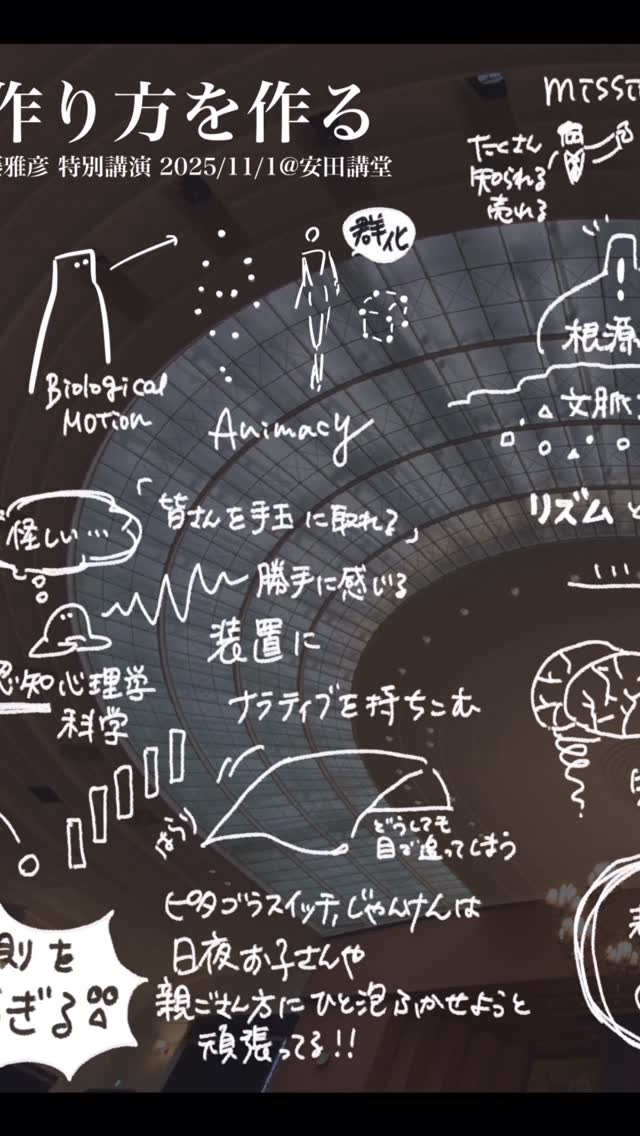 作り方を作る
雅彦 特別講演 2025/11/1@安田講堂
たくさん
知られる
売れる
群化
Biological
Motion
Animacy
根源
文脈
リズム と
怪しい…
「皆さんを手玉に取れる」
勝手に感じる
装置に
ナラティブを持ちこむ
認知心理学
科学
どうしても
目で追ってしまう
ピタゴラスイッチ,じゃんけんは
日夜お子さんや
親ごさん方にひと泡ふかせようと
頑張ってる!!
則を
ぎる